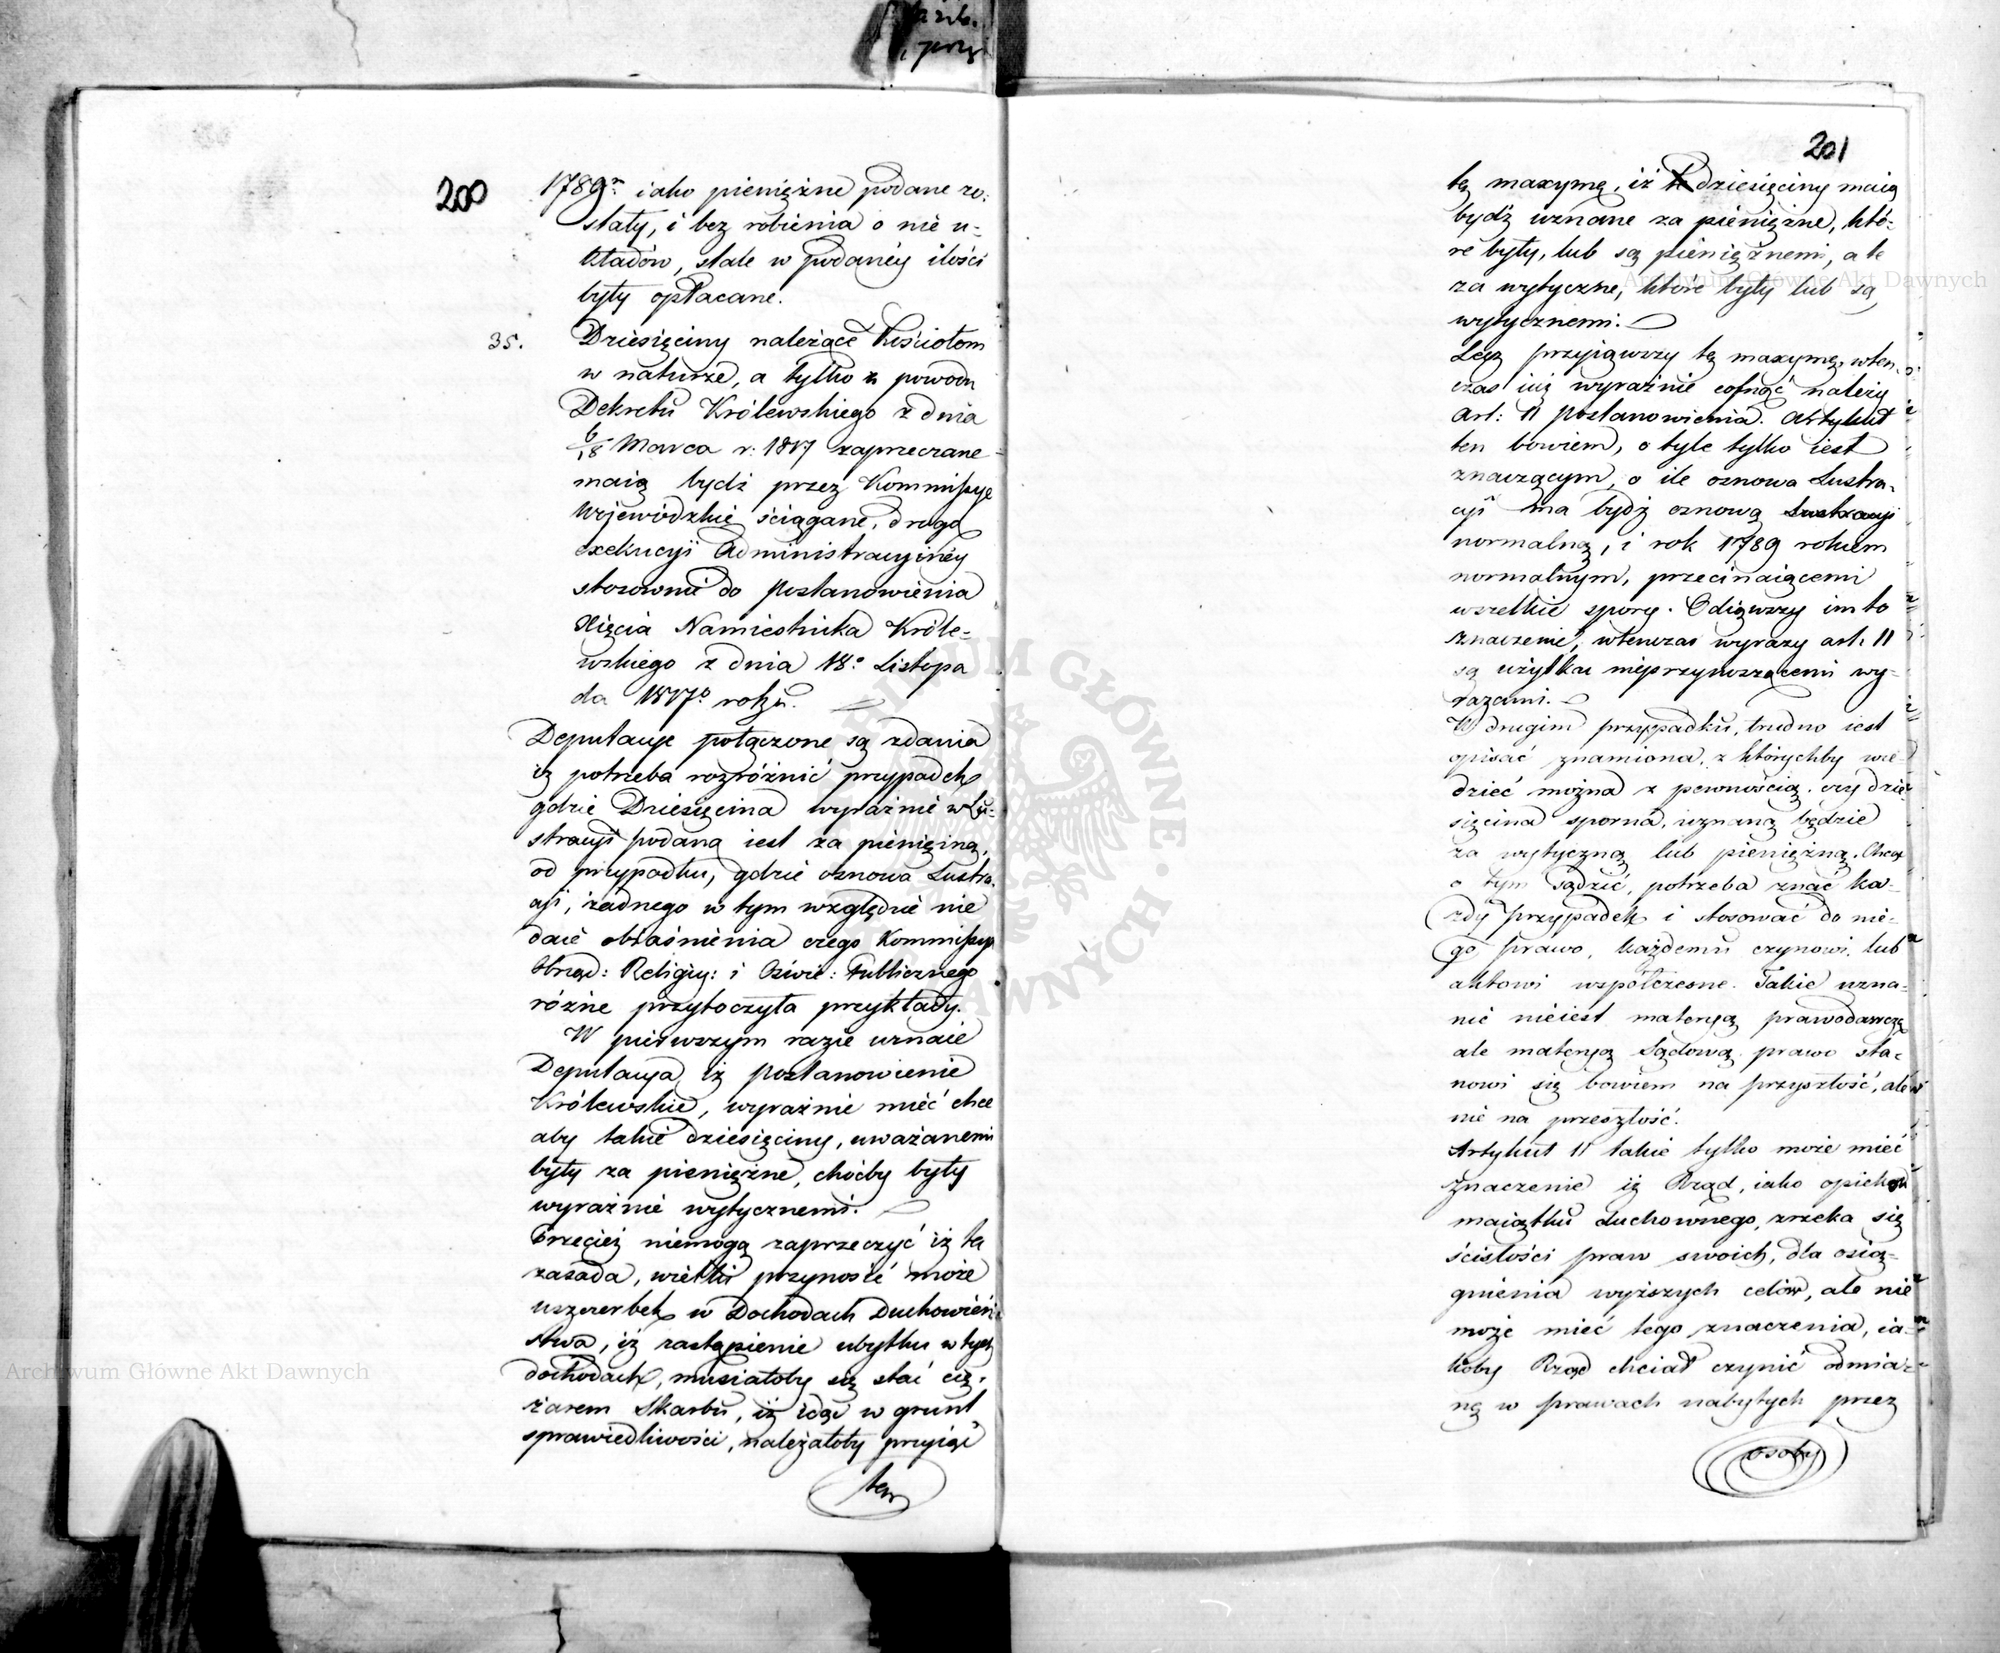 200
1789m iako pieniężne podane zo:
stały, i bez robienia o nie u-
kładów, stale w podanéy ilości
były opłacane.
35. Dziesięciny należące Kościołom
w naturze, a tylko z powodu
Dekretu Królewskiego z dnia
6/18 Marca r: 1817 zaprzeczane
maią bydź przez Kommissye
Wojewódzkie ściągane, drogą
exekucyi Administracyinéy
stosownie do postanowienia
Xięcia Namiestnika Króle-
wskiego z dnia 18o Listopa
da 1817o roku.
Deputacye połączone są zdania
iż potrzeba rozróżnić przypadek
gdzie Dziesięcina wyraźnie w Lu-
stracyi podaną iest za pieniężną,
od przypadku, gdzie osnowa Lustra-
cyi, żadnego w tym względzie nie
daie obiaśnienia czego Kommissya
Obrząd: Religiy: i Oświe: Publicznego
różne przytoczyła przykłady.
W pierwszym razie uznaie
Deputacya, iż postanowienie
Królewskie, wyraźnie mieć chce
aby takie dziesięciny, uważanemi
były za pieniężne, chóćby były
wyraźnie wytycznemi.
Przecież niemogą zaprzeczyć iż ta
zasada, wielki przynosić może
uszczerbek w Dochodach Duchowień
stwa, iż zastąpienie ubytku w tych
dochodach, musiałoby się stać cię-
żarem Skarbu, iż idąc w grunt
sprawiedliwości, należałoby przyiąć
tę
201
tę maxymę, iż dziesięciny maią
bydź uznane za pieniężne, któ-
re były, lub są pieniężnemi, a te
za wytyczne, które były lub są
wytycznemi.
Lecz przyiąwszy tę maxymę, wten
czas iuż wyraźnie cofnąć należy
Art: 11 postanowienia. Artykuł
ten bowiem, o tyle tylko iest
znaczącym, o ile osnowa Lustra-
cyi ma bydź osnową Lustracyi
normalną, i rok 1789 rokiem
normalnym, przecinaiącemi
wszelkie spory. Odiąwszy im to
znaczenie, wtenczas wyrazy art: 11
są użytku nieprzynoszącemi wy-
razami.
W drugim przypadku, trudno iest
opisać znamiona, z którychby wie-
dzieć można z pewnością, czy dzie-
sięcina sporna, uznaną będzie
za wytyczną lub pieniężną. Chcąc
o tym sądzić, potrzeba znać ka-
żdy przypadek i stosować do nie-
go prawo, każdemu czynowi, lub
aktowi współczesne. Takie uzna-
nie nieiest materyą prawodawczą
ale materyą Sądową, prawo sta-
nowi się bowiem na przyszłość, ale
nie na przeszłość.
Artykuł 11 takie tylko może mieć
znaczenie iż Rząd, iako opiekun
maiątku duchownego, zrzeka się
ścisłości praw swoich, dla osią-
gnienia wyższych celów, ale nie
może mieć tego znaczenia, ia-
koby Rząd chciał czynić odmia-
nę w prawach nabytych przez
osoby
Archiwum Główne Akt Dawnych
Archiwum Główne Akt Dawnych
ARCHIWUM GŁÓWNE AKT DAWNYCH